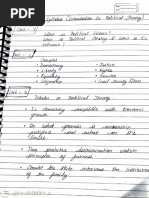 Syllabus (Introduction to Political Theory)
Unit - 1
What is Political Science?
What is Political Theory & What is its
relevance?
Unit - 2
Concepts
• Democracy • Justice
• Liberty • Rights
• Equality • Gender
• Citizenship • Civil Society & State
Unit - 3
Debates in Political Theory
Is democracy compatible with economic
growth
On what grounds is censorship
justified and what are its
limits
Does protective discrimination violate
principles of fairness
Should the State intervene the institution
of the family